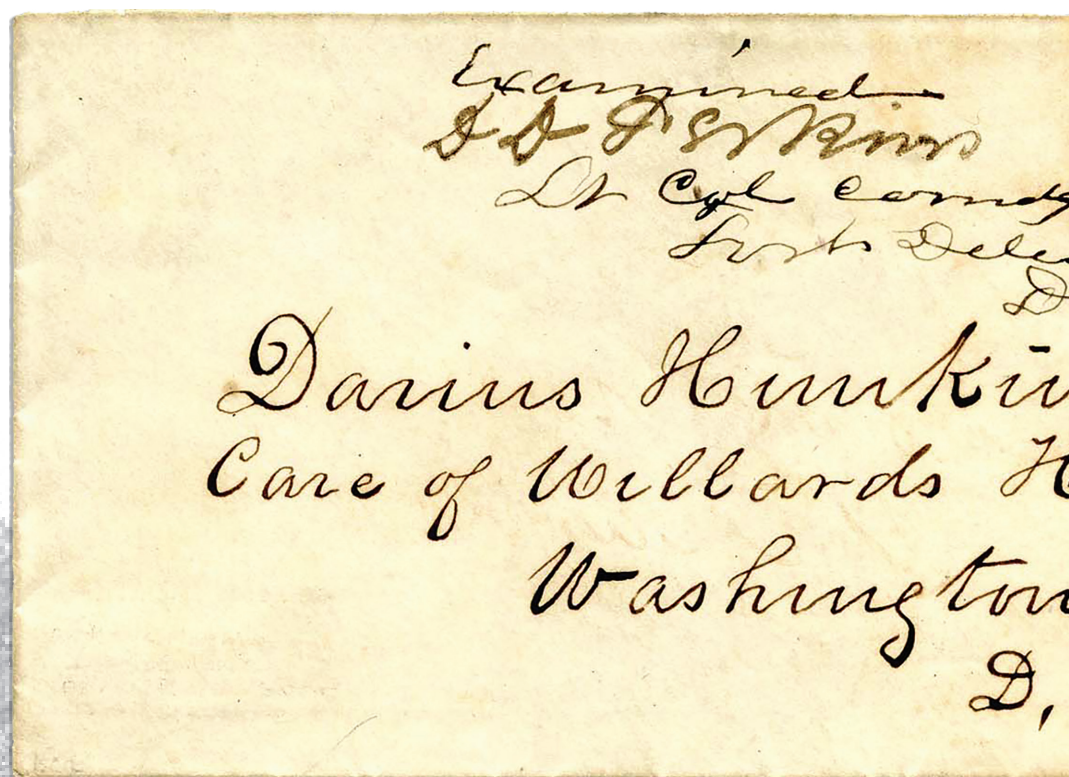 Examined
D D Perkins
Lt Col Comdg
Fort Dela
D
Darius Hunkin
Care of Willards H
Washington
D,